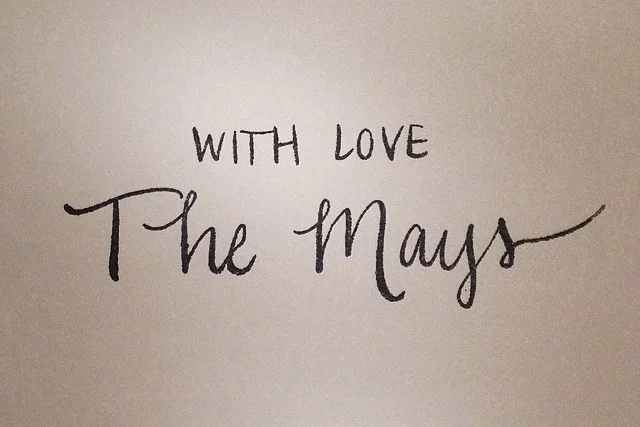 WITH LOVE
The Mays